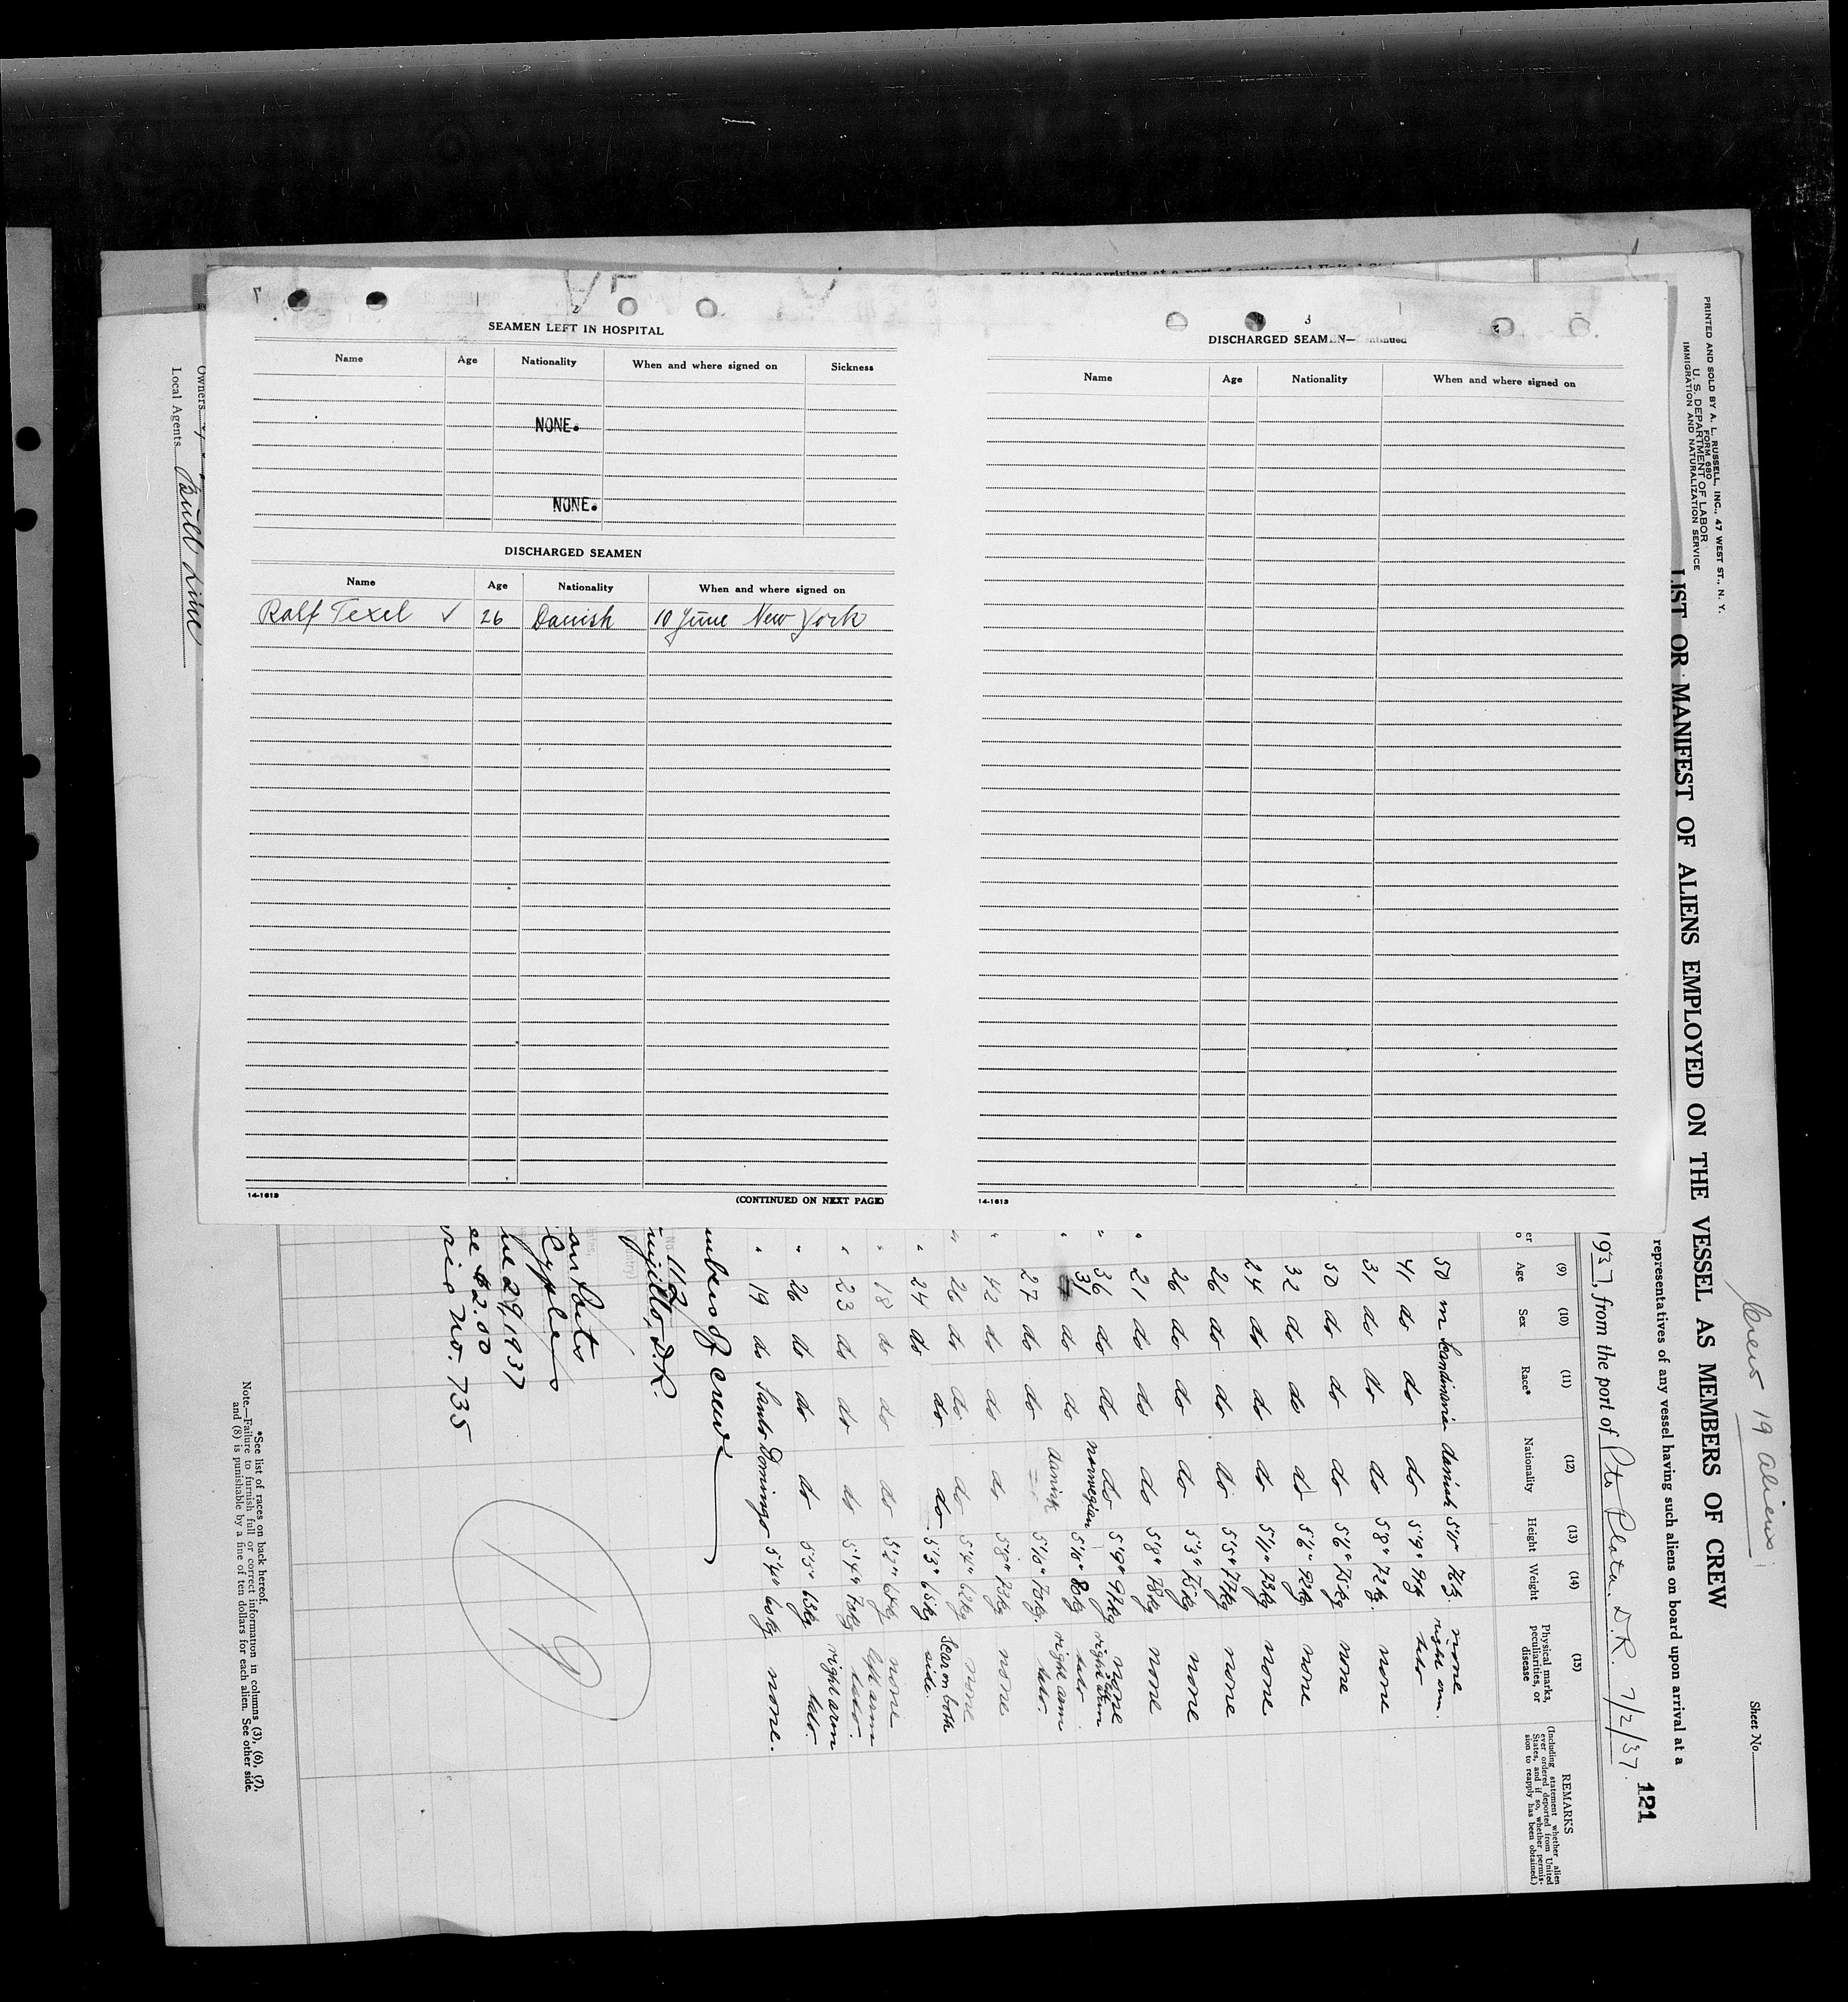 2
SEAMEN LEFT IN HOSPITAL
Name Age Nationality When and where signed on Sickness
NONE.
NONE.
DISCHARGED SEAMEN
Name Age Nationality When and where signed on
Ralf Texel ✓ 26 Danish 10 June New York
14-1613
(CONTINUED ON NEXT PAGE)
3
DISCHARGED SEAMEN—Continued
Name Age Nationality When and where signed on
14-1613
Owners
Local Agents Bull Line
Crew 19 aliens
Sheet No.
PRINTED AND SOLD BY A. L. RUSSELL, INC., 47 WEST ST., N. Y.
FORM 680
U. S. DEPARTMENT OF LABOR
IMMIGRATION AND NATURALIZATION SERVICE
LIST OR MANIFEST OF ALIENS EMPLOYED ON THE VESSEL AS MEMBERS OF CREW
representatives of any vessel having such aliens on board upon arrival at a
121
1937, from the port of Pto Plata. D.R. 7/2/37.
(9) (10) (11) (12) (13) (14) (15) REMARKS
Age Sex Race* Nationality Height Weight Physical marks, peculiarities, or disease
(Including statement whether alien ever ordered deported from United States, and if so, whether permission to reapply has been obtained.)
50 m Scandinavia danish 5'11" 76kg. none
41 do do do 5'9" right arm tato
31 do do do 5'8" 72kg. none
50 do do do 5'6" 75kg none
32 do do do 5'6" none
24 do do do 5'11" 73kg none
26 do do do 5'5" 77kg none
26 do do do 5'3" 75kg none
21 do do do 5'8" 78kg none
36 do do do 5'9" none
31 do do norwegian 5'10" 80kg right arm tato
27 do do danish 5'10" 70kg. right arm tato.
42 do do do 5'8" 73kg none
26 do do do 5'4" 62kg none
24 do do do 5'3" 65kg Scar on both side.
18 do do do 5'2" none
23 do do do 5'4" 70kg left arm tato.
26 do do do 5'5" 63kg right arm tato.
19 do Santo Domingo 5'4" 60kg none.
mbers of crew
112
ujillo, D.R.
ne 29, 1937
ee $2.00
vice No. 735
19
*See list of races on back hereof.
Note.—Failure to furnish full or correct information in columns (3), (6), (7),
and (8) is punishable by a fine of ten dollars for each alien. See other side.